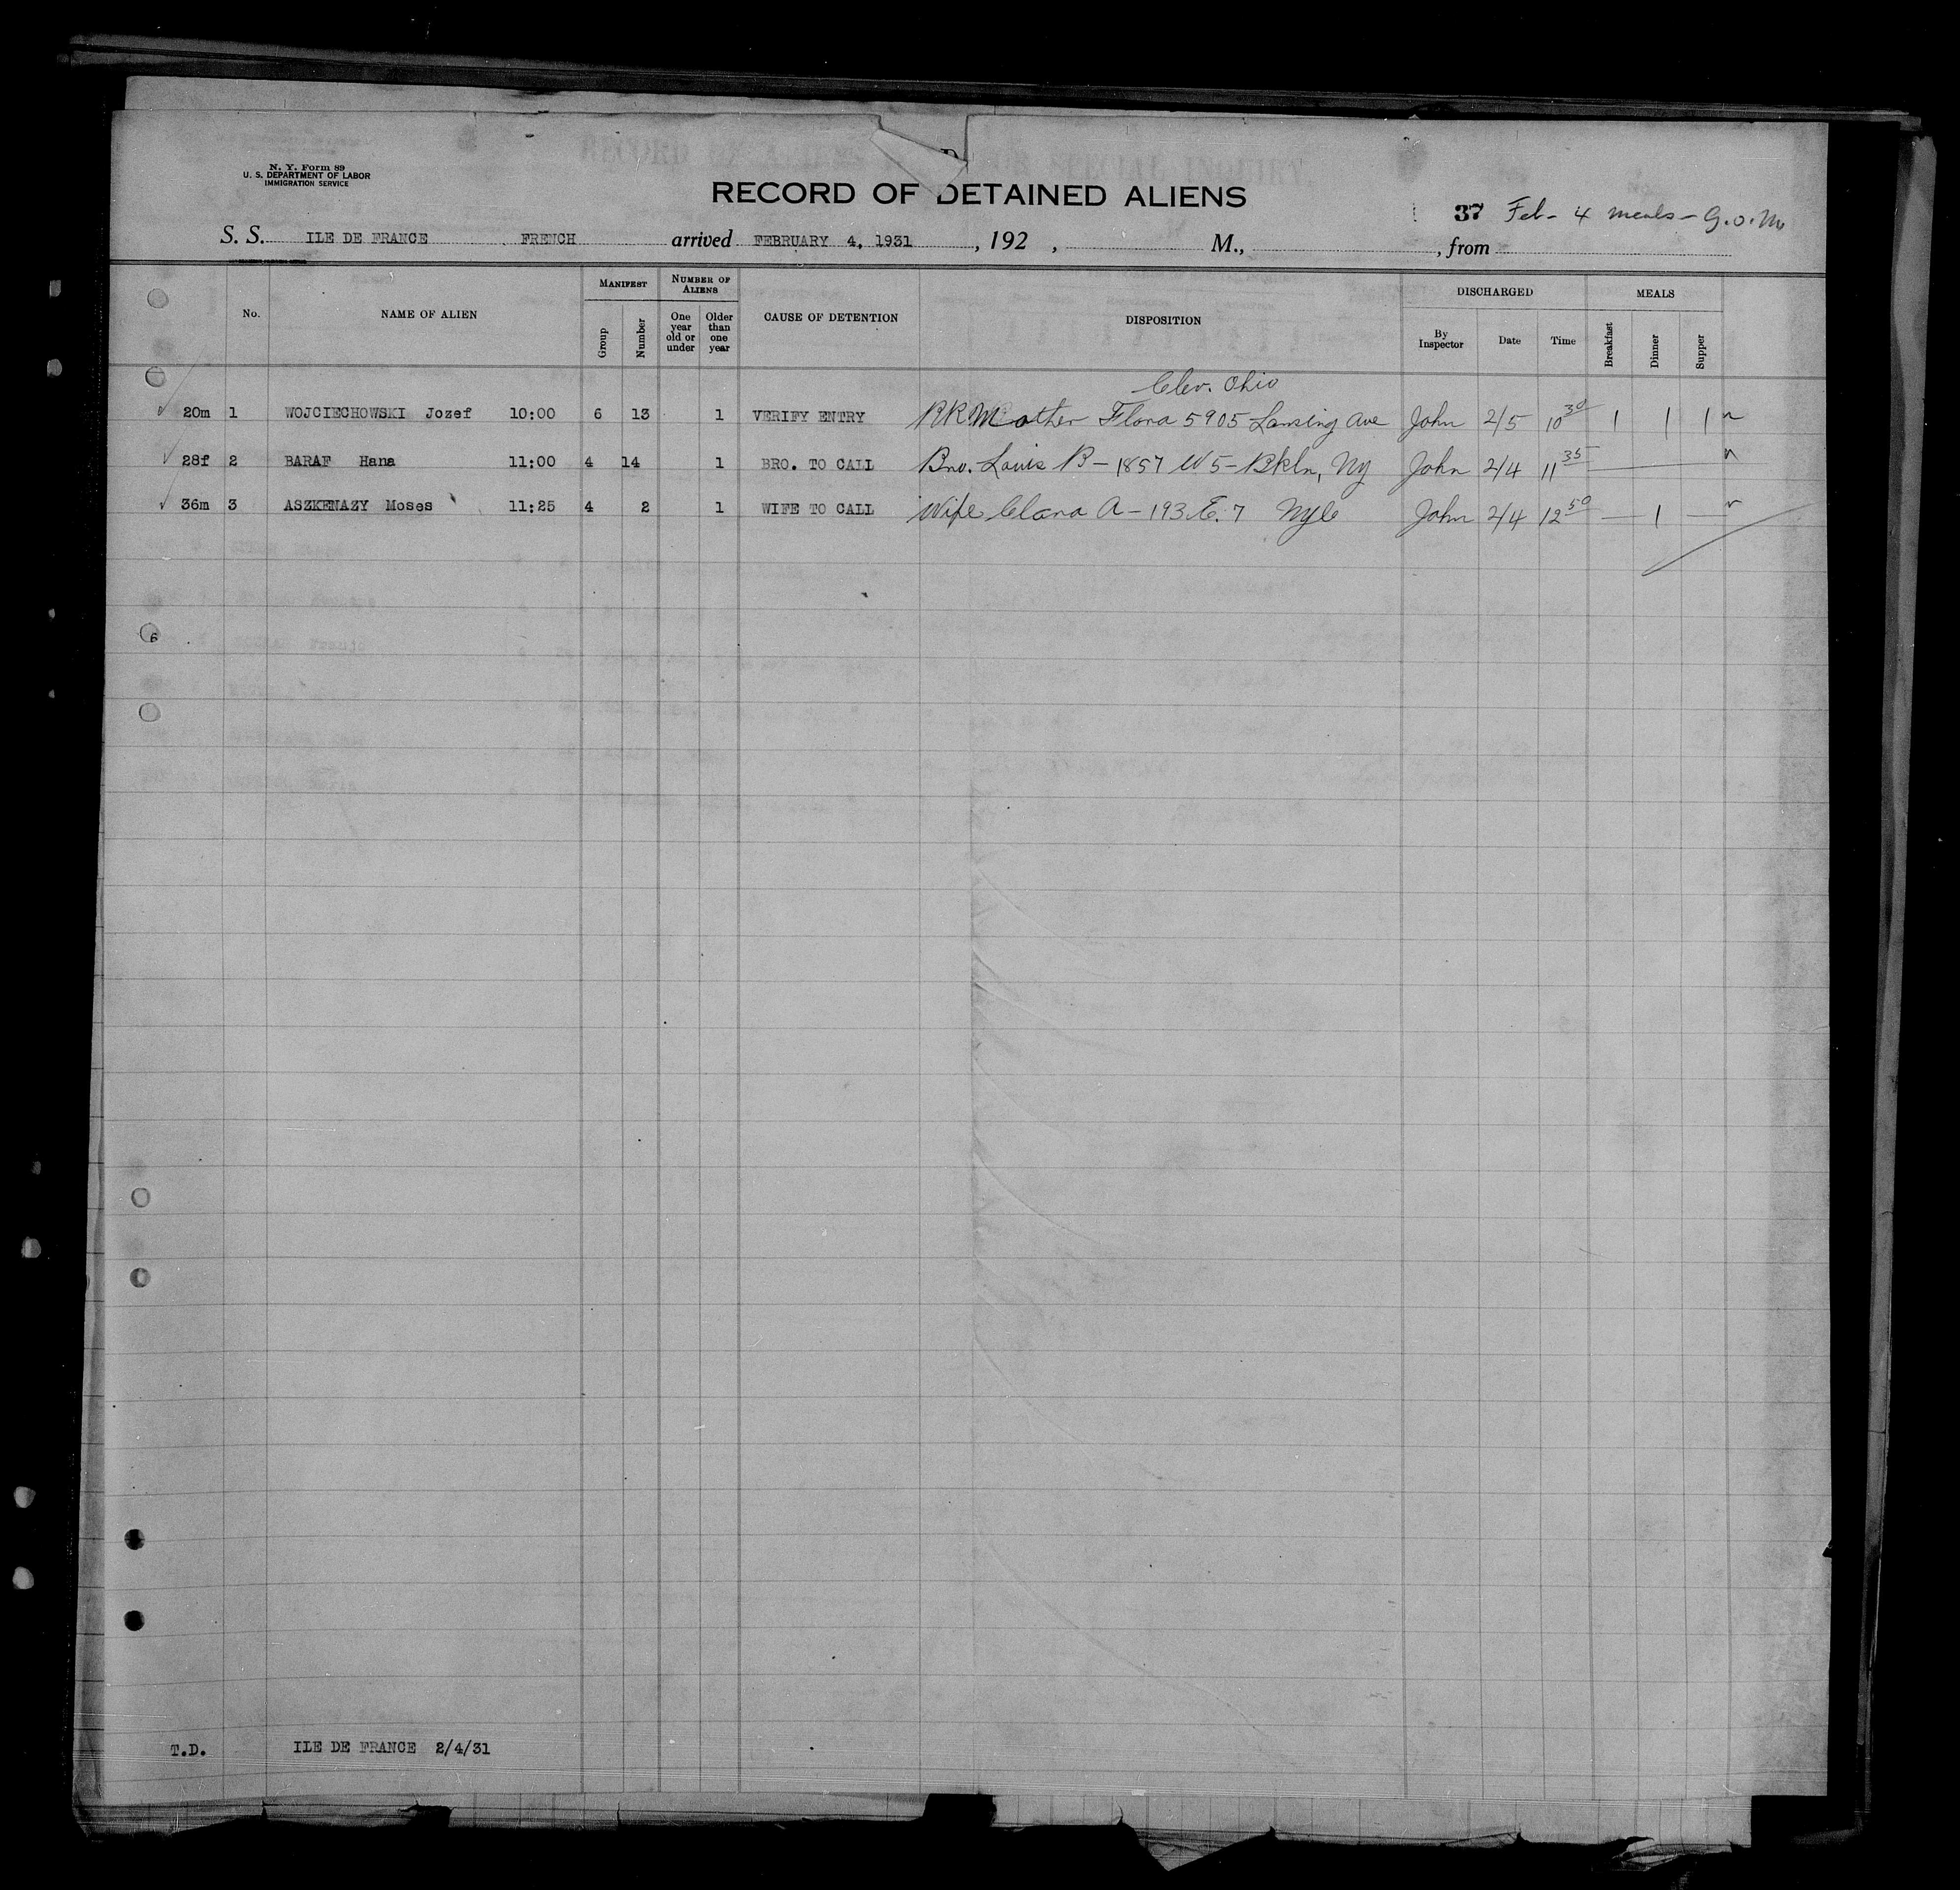 N. Y. Form 89
U. S. DEPARTMENT OF LABOR
IMMIGRATION SERVICE
RECORD OF DETAINED ALIENS
37 Feb - 4 meals - G.O.M.
S. S. ILE DE FRANCE FRENCH arrived FEBRUARY 4, 1931, 192 , M., , from
No. NAME OF ALIEN MANIFEST Group Number NUMBER OF ALIENS One year old or under Older than one year CAUSE OF DETENTION DISPOSITION DISCHARGED By Inspector Date Time MEALS Breakfast Dinner Supper
Clev. Ohio
20m 1 WOJCIECHOWSKI Jozef 10:00 6 13 1 VERIFY ENTRY RR Mother Flora 5905 Lansing Ave John 2/5 10 30 1 1 1
28f 2 BARAF Hana 11:00 4 14 1 BRO. TO CALL Bro. Louis B - 1857 W 5 - Bkln, Ny John 2/4 11 35
36m 3 ASZKENAZY Moses 11:25 4 2 1 WIFE TO CALL Wife Clara A - 193 E. 7 NyC John 2/4 12 50 — 1 —
6
T.D. ILE DE FRANCE 2/4/31